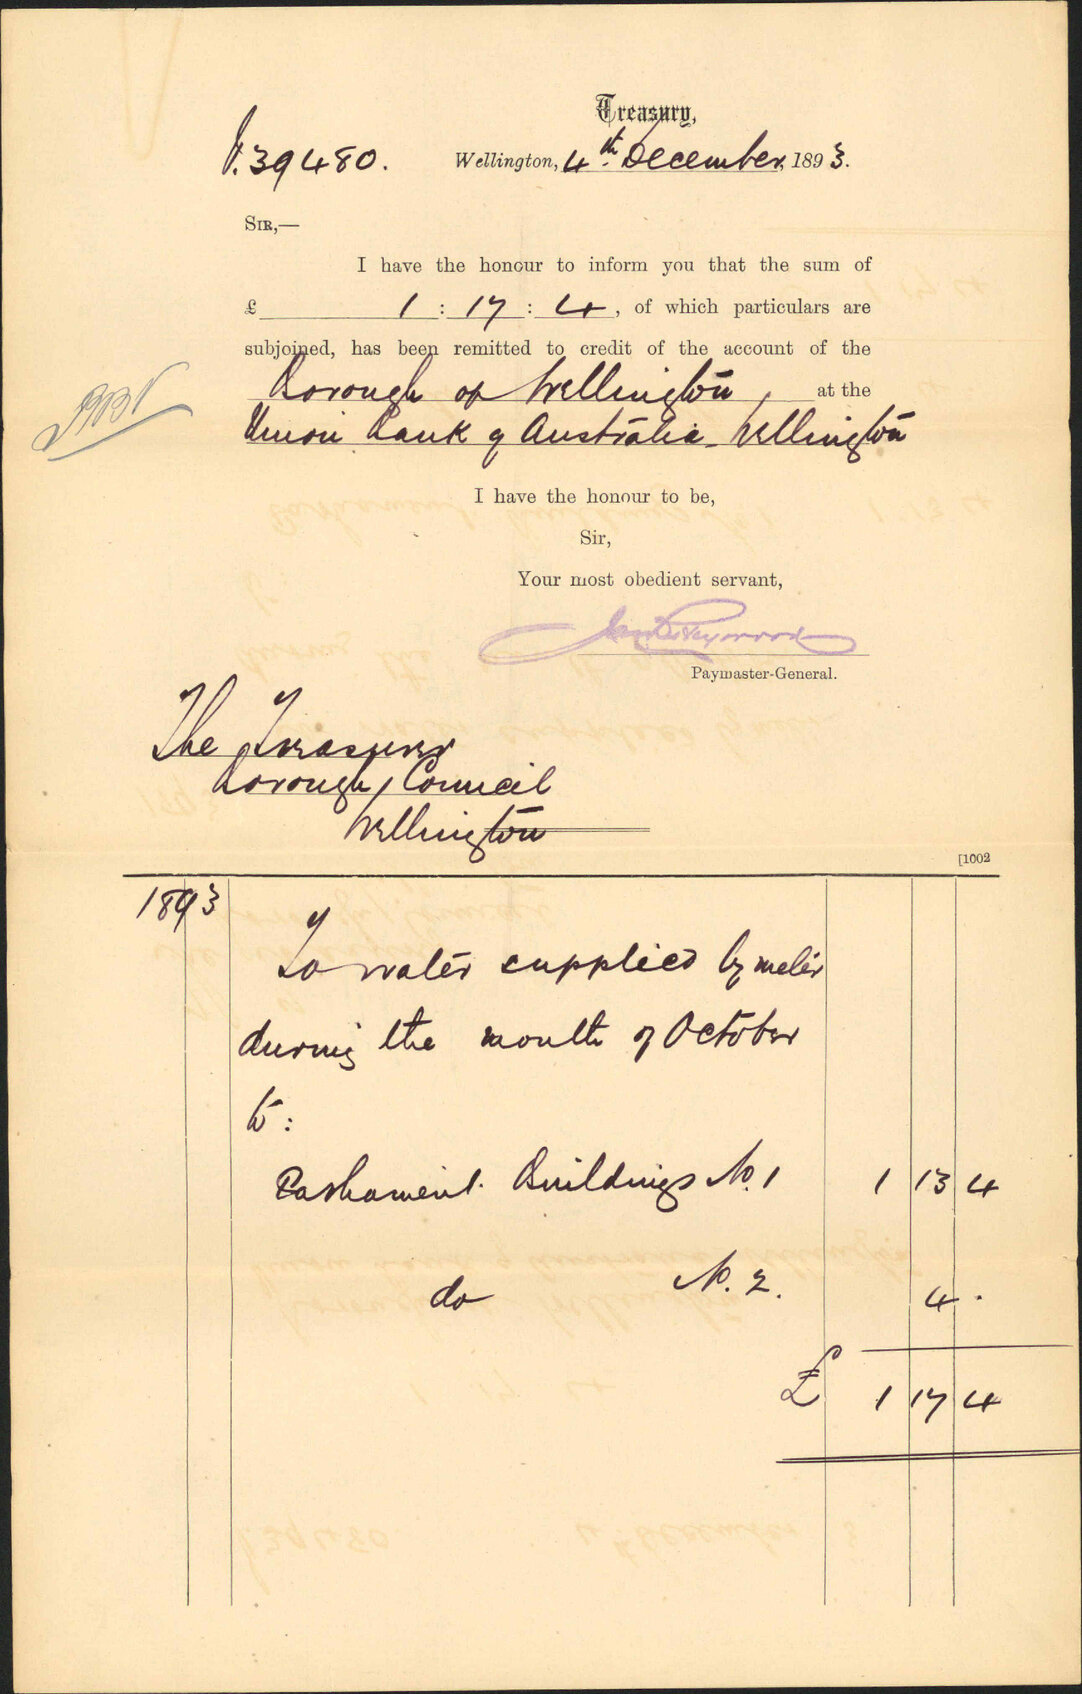 Treasury,
V. 39480. Wellington, 4th December, 1893.
SIR,—
I have the honour to inform you that the sum of
£ 1 : 17 : 4, of which particulars are
subjoined, has been remitted to credit of the account of the
Borough of Wellington, at the
Union Bank of Australia Wellington
I have the honour to be,
Sir,
Your most obedient servant,
Paymaster-General.
The Treasurer
Borough Council
Wellington
[1002
1893
To water supplied by meter
during the month of October
to:
Parliament Buildings No. 1 1 13 4
do No. 2. 4 .
£ 1 17 4